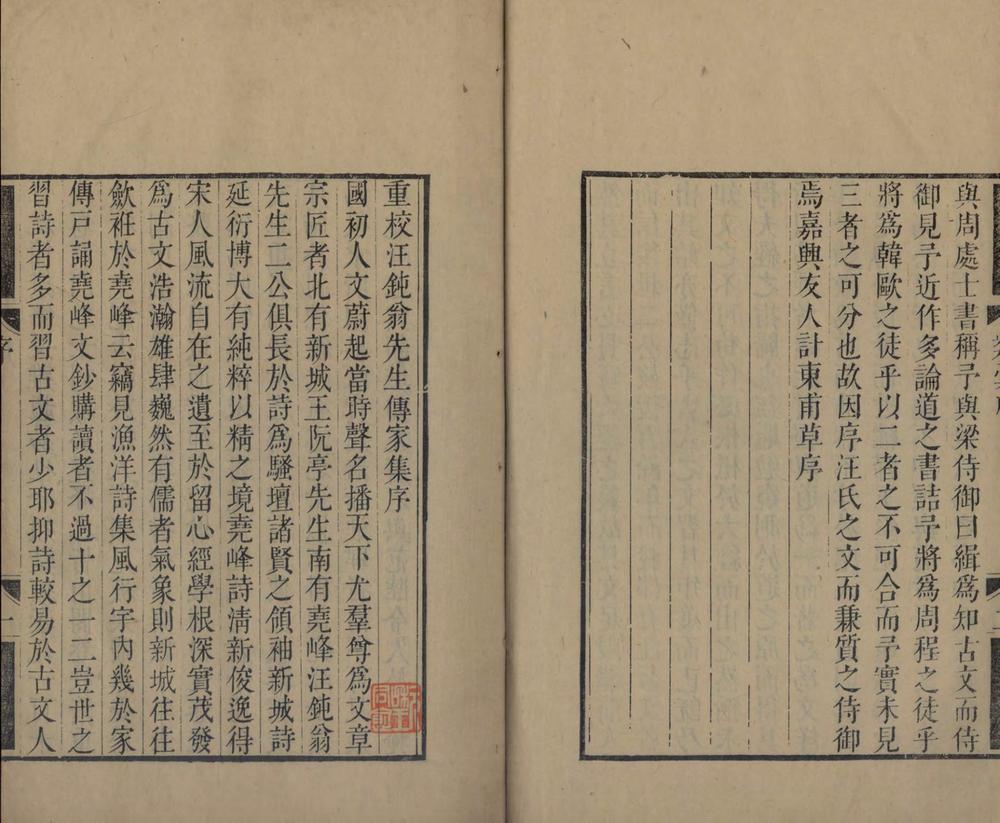 與周處士書稱予與梁侍御曰緝爲知古文而侍
御見予近作多論道之書詰予將爲周程之徒乎
將爲韓歐之徒乎以二者之不可合而予實未見
三者之可分也故因序汪氏之文而兼質之侍御
焉嘉興友人計東甫草序
重校汪鈍翁先生傳家集序
國初人文蔚起當時聲名播天下尤羣尊爲文章
宗匠者北有新城王阮亭先生南有堯峰汪鈍翁
先生二公俱長於詩爲騷壇諸賢之領袖新城詩
延衍博大有純粹以精之境堯峰詩清新俊逸得
宋人風流自在之遺至於留心經學根深實茂發
爲古文浩瀚雄肆巍然有儒者氣象則新城往往
歛袵於堯峰云竊見漁洋詩集風行宇內幾於家
傳戸誦堯峰文鈔購讀者不過十之一二豈世之
習詩者多而習古文者少耶抑詩較易於古文人
序
一